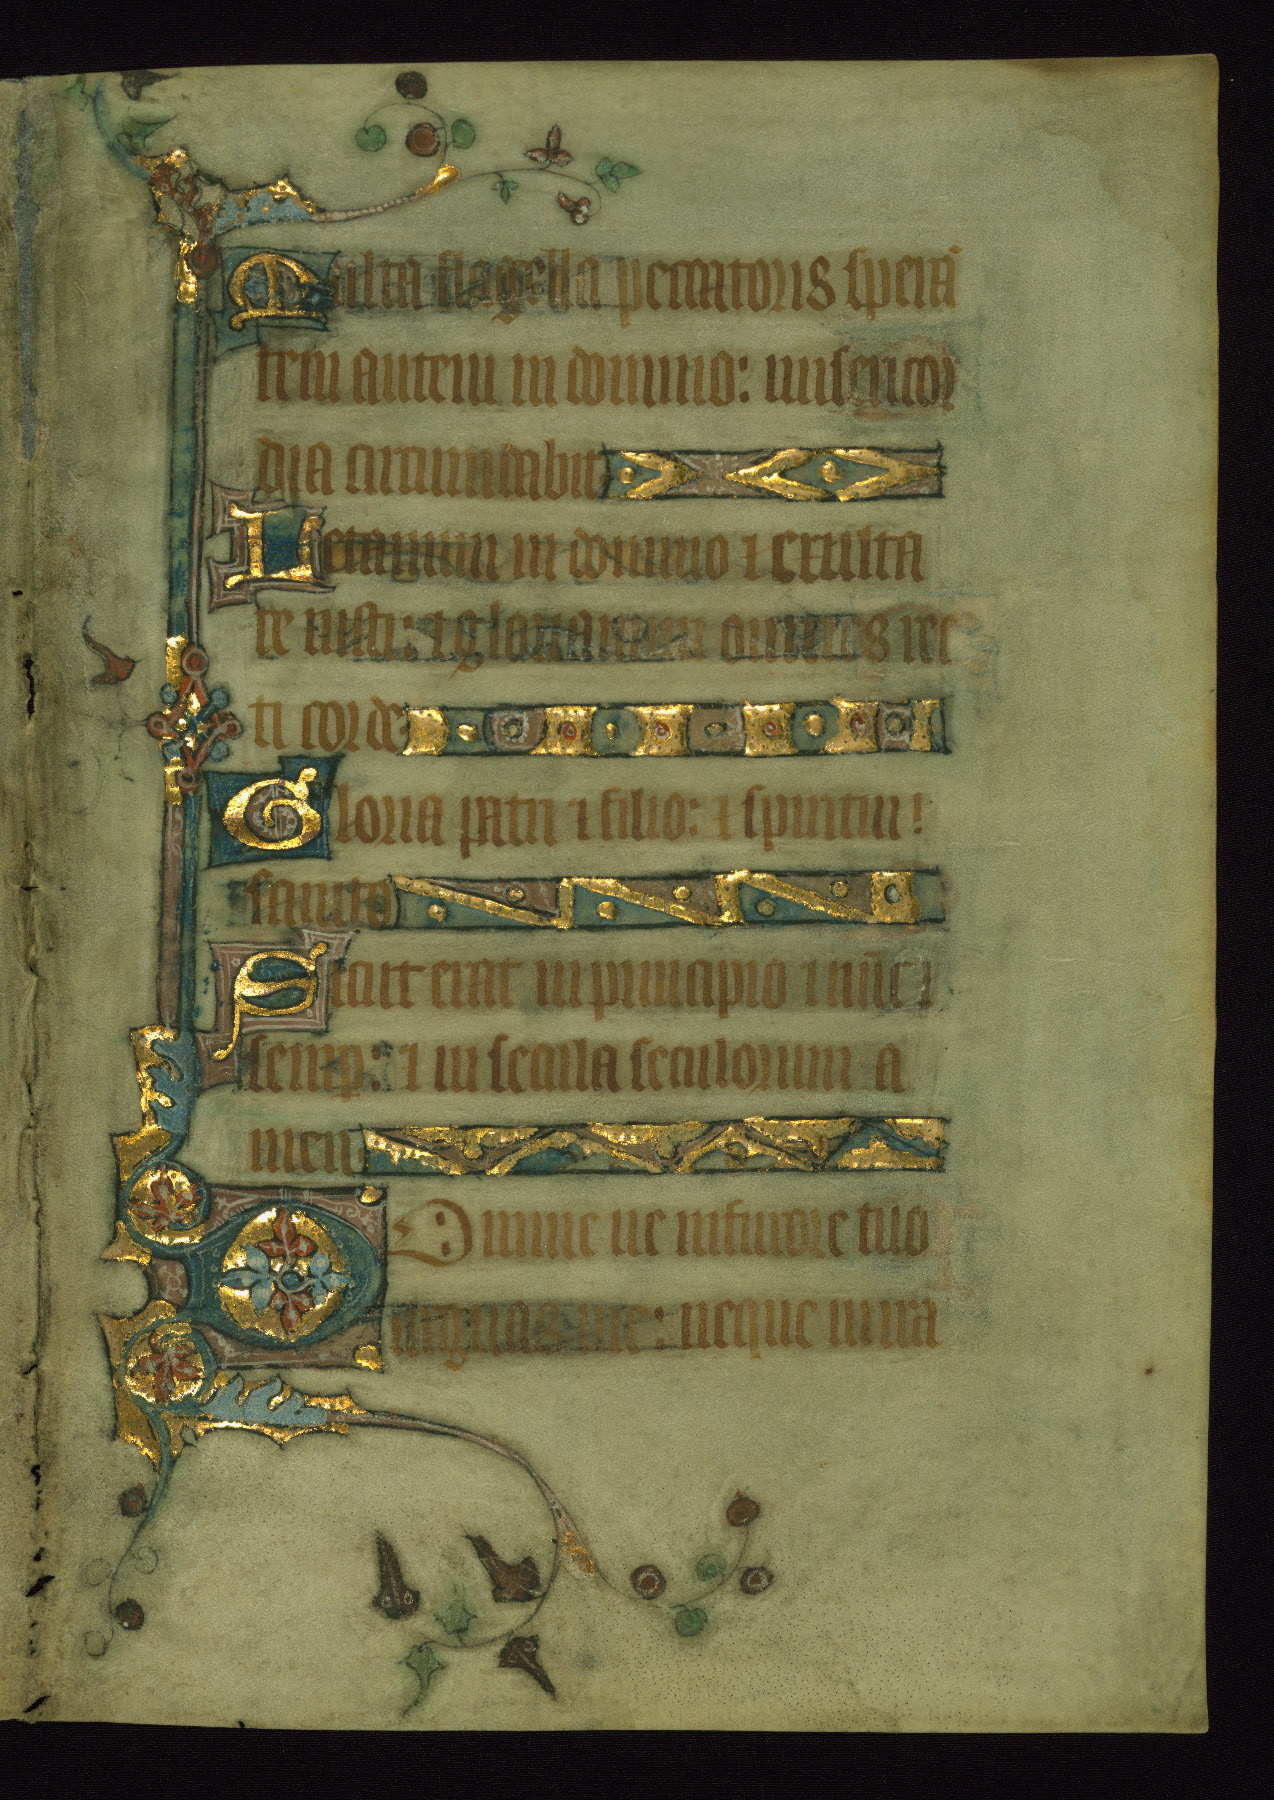 Multa flagella peccatoris sperã
tem autem in domino: misericor
dia circumdabit
Letamini in domino ⁊ exulta
te iusti: ⁊ gloriamini omnes rec
ti corde
Gloria patri ⁊ filio: ⁊ spiritui
sancto
Sicut erat in principio ⁊ nũc ⁊
semp: ⁊ in secula seculorum a
men
Domine ne in furore tuo
arguas me: neque in ira